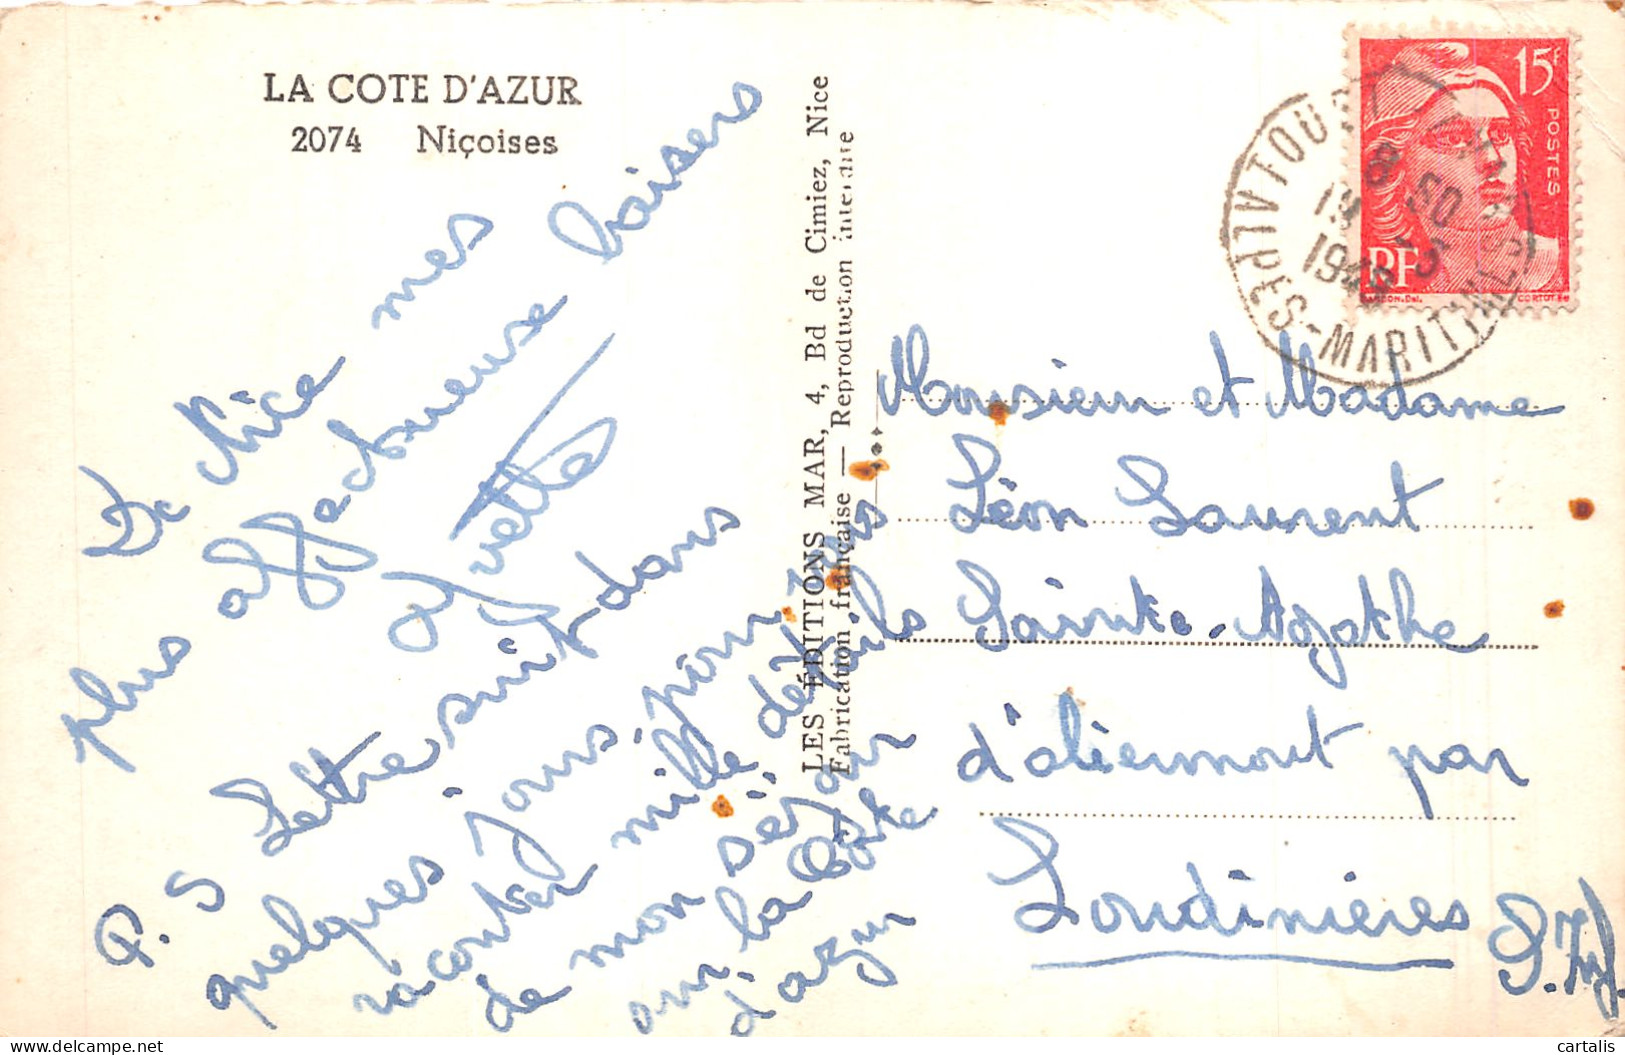 LA COTE D'AZUR
2074 Niçoises
De Nice mes
plus affectueuse baisers
Yvette
P.S Lettre suit dans
quelques jours, pour vous
raconter mille détails
de mon séjour
sur la Côte
d'azur
LES ÉDITIONS MAR, 4, Bd de Cimiez, Nice
Fabrication française — Reproduction interdite
15F
POSTES
RF
GANDON.Del.
CORTOT
ALPES-MARITIMES
19
1949
Monsieur et Madame
Léon Laurent
Sainte-Agathe
d'aliermont par
Londinières
S. Inf.
cartalis
delcampe.net